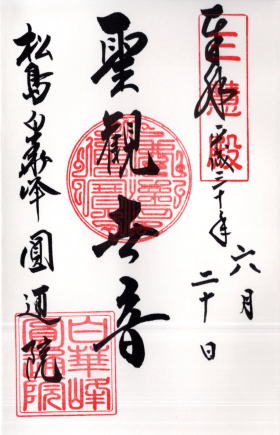 奉拝 平成三十年
六月
二十日
三慧殿
聖観世音
松島白華峰圓通院
白華峰
圓通院